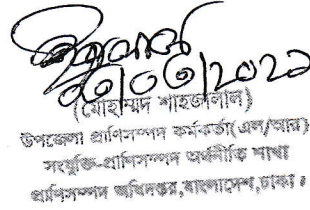 (মোহাম্মদ শাহজালাল)
উপজেলা প্রাণিসম্পদ কর্মকর্তা(এল/আর)
সংযুক্তি-প্রাণিসম্পদ অর্থনীতি শাখা
প্রাণিসম্পদ অধিদপ্তর,বাংলাদেশ,ঢাকা।